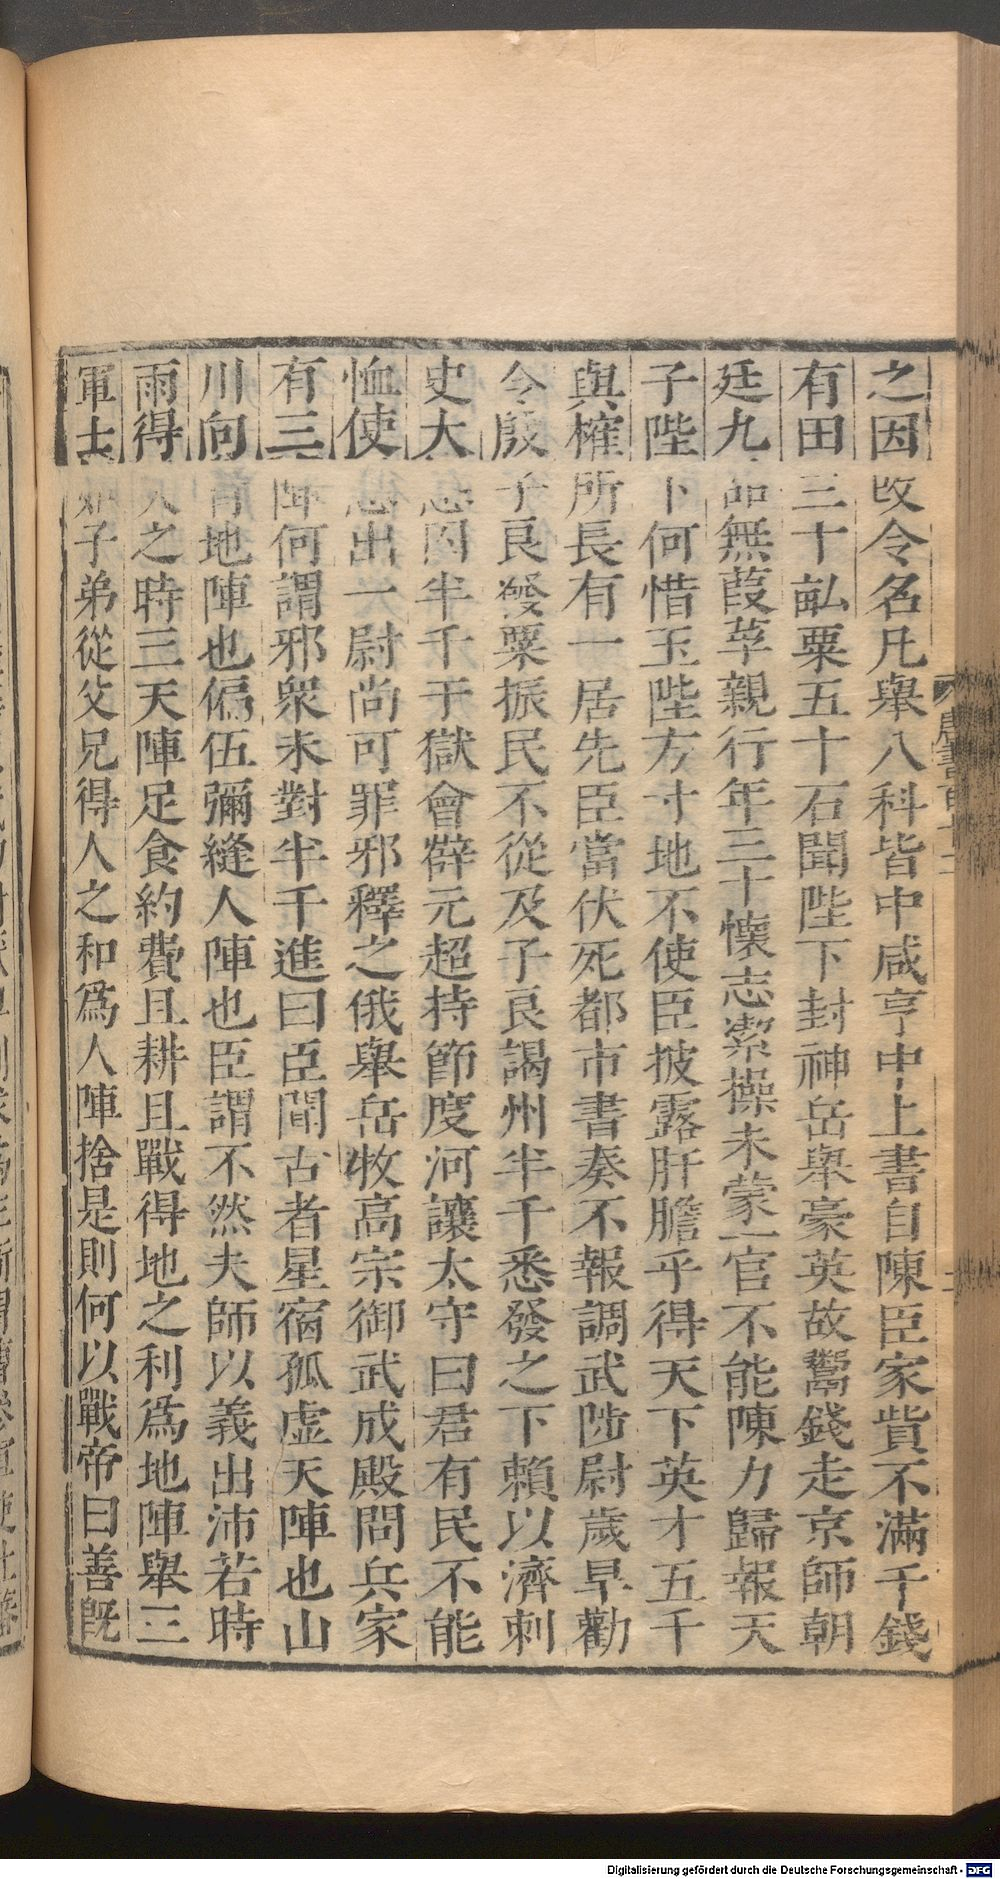 之因改令名凡舉八科皆中咸亨中上書自陳臣家貲不滿千錢
有田三十畝粟五十石聞陛下封神岳舉豪英故鬻錢走京師朝
廷九品無葭莩親行年三十懷志潔操未蒙一官不能陳力歸報天
子陛下何惜玉陛方寸地不使臣披露肝膽乎得天下英才五千
與榷所長有一居先臣當伏死都市書奏不報調武陟尉歲旱勸
令殷子良發粟振民不從及子良謁州半千悉發之下賴以濟刺
史大怒囚半千于獄會薛元超持節度河讓太守曰君有民不能
恤使惠出一尉尚可罪邪釋之俄舉岳牧高宗御武成殿問兵家
有三陣何謂邪眾未對半千進曰臣聞古者星宿孤虛天陣也山
川向背地陣也偏伍彌縫人陣也臣謂不然夫師以義出沛若時
雨得天之時三天陣足食約費且耕且戰得地之利爲地陣舉三
軍士如子弟從父兄得人之和爲人陣捨是則何以戰帝曰善旣
唐書百十二
Digitalisierung gefördert durch die Deutsche Forschungsgemeinschaft - DFG